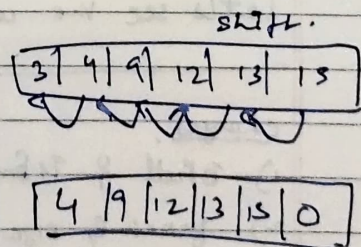 shift.
3 | 4 | 9 | 12 | 13 | 15
4 | 9 | 12 | 13 | 15 | 0